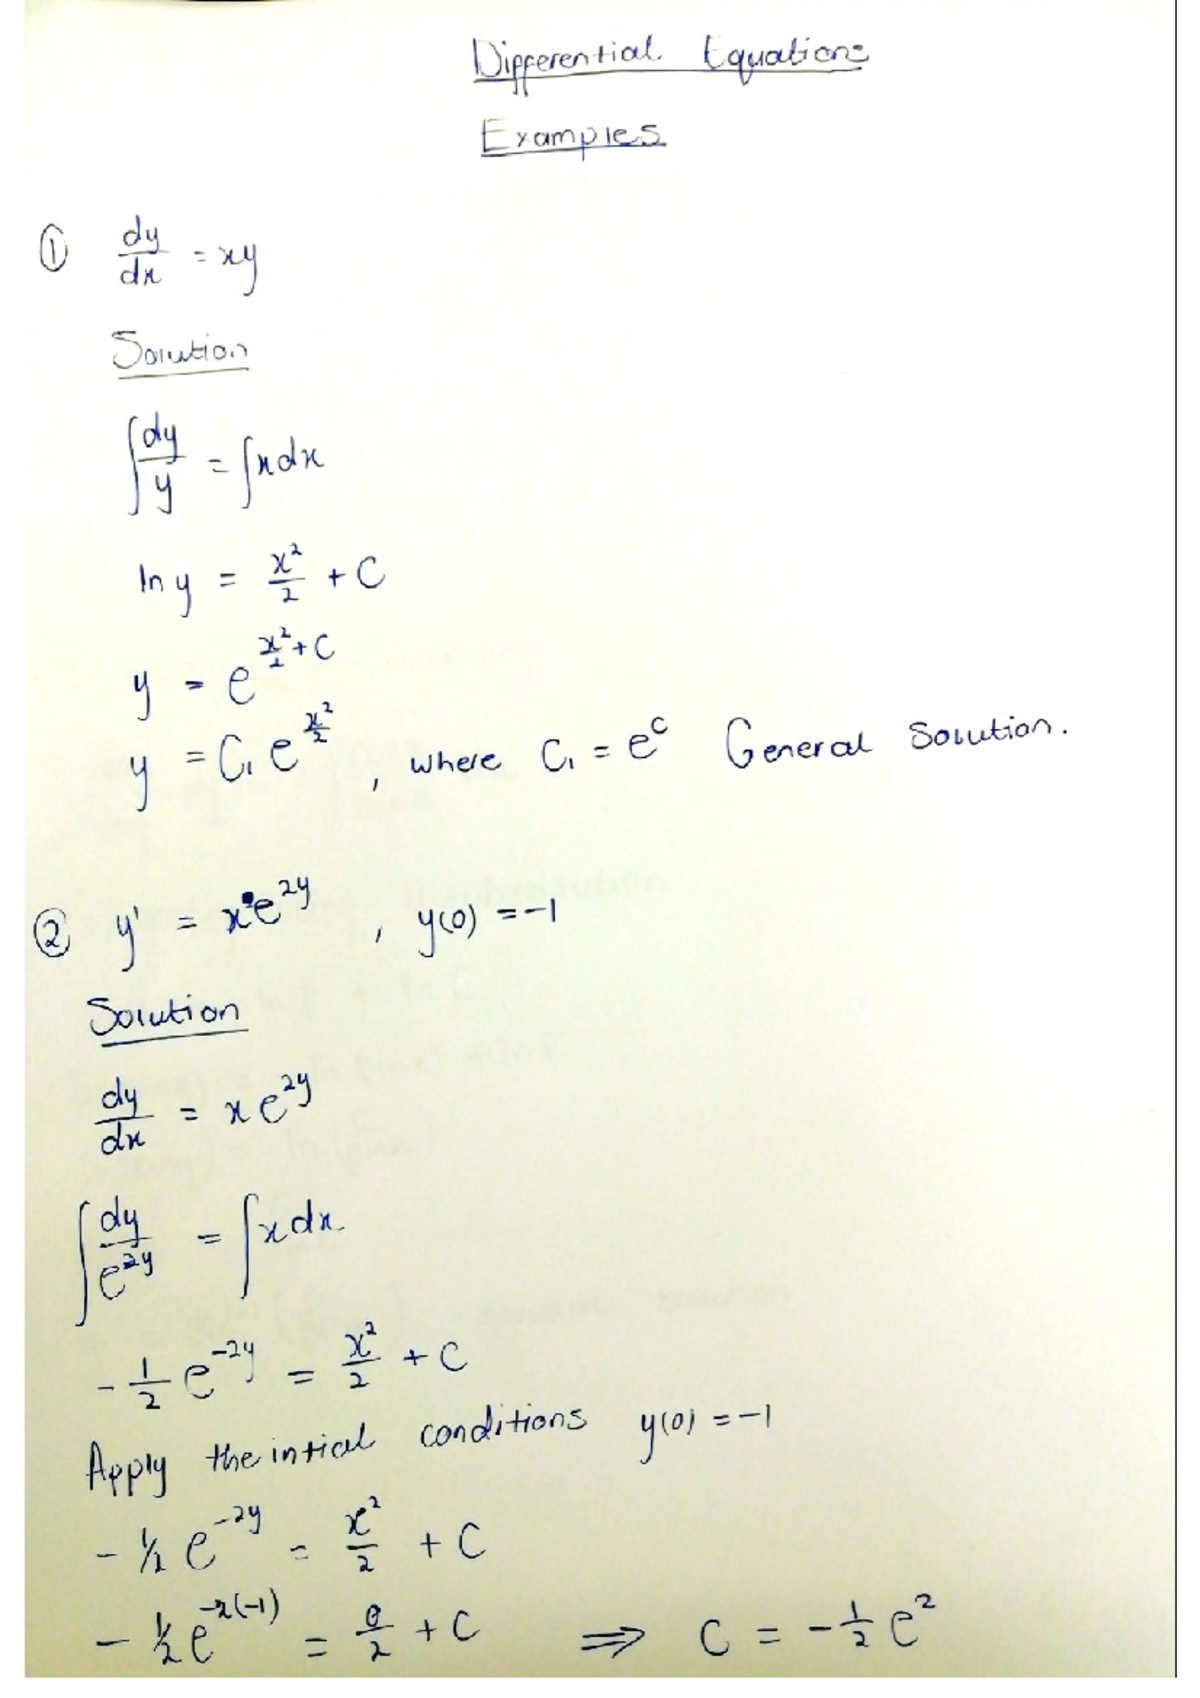 Differential Equations
Examples
① dy/dx = xy
Solution
∫ dy/y = ∫ x dx
ln y = x²/2 + C
y = e^(x²/2 + C)
y = C₁ e^(x²/2) , where C₁ = e^c General Solution.
② y' = x e^(2y) , y(0) = -1
Solution
dy/dx = x e^(2y)
∫ dy/e^(2y) = ∫ x dx
- 1/2 e^(-2y) = x²/2 + C
Apply the intial conditions y(0) = -1
- 1/2 e^(-2y) = x²/2 + C
- 1/2 e^(-2(-1)) = 0/2 + C ⇒ C = - 1/2 e²